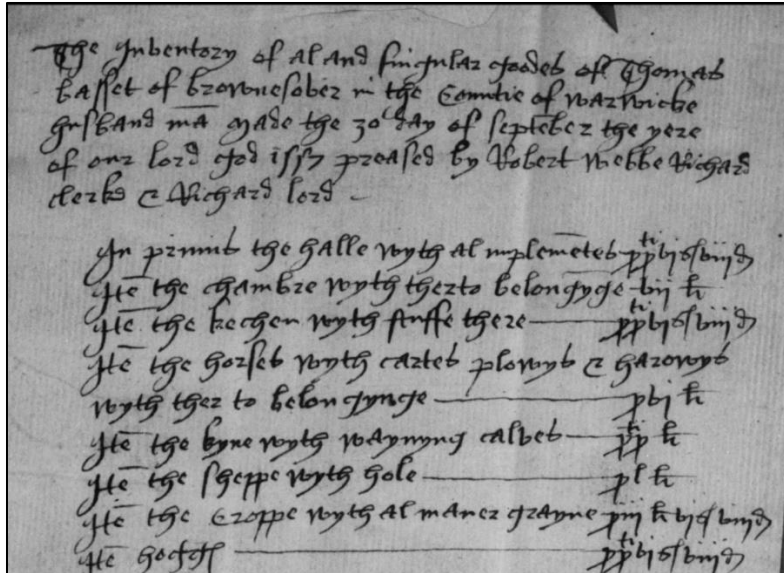 The Inventory of al and singular goodes of Thomas
basset of brownesover in the Countie of warwicke
husband mā made the 30 day of septēber the yere
of our lord god 1557 preased by Robert Webbe Richard
clerke & Richard lord -
In primis the halle wyth al implemētes xxti vis viiid
Itē the chambre wyth therto belongynge vii li
Itē the kechen wyth stuffe there xxti vis viiid
Itē the horses wyth cartes plowys & harowys
wyth ther to belongynge xvi li
Itē the kyne wyth waynyng calves xx li
Itē the sheppe wyth hole xl li
Itē the Croppe wyth al maner grayne xiii li vis viiid
Itē hogges xxti vis viiid